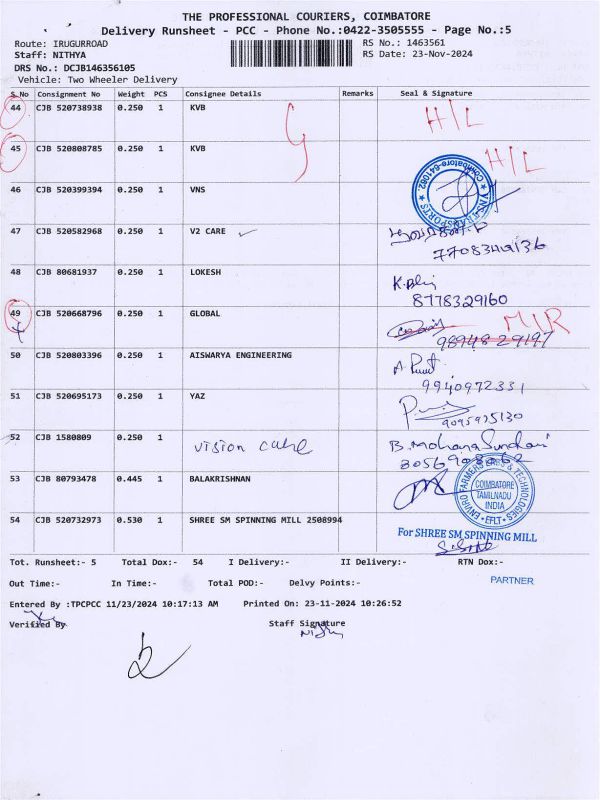 THE PROFESSIONAL COURIERS, COIMBATORE
Delivery Runsheet - PCC - Phone No.:0422-3505555 - Page No.:5
Route: IRUGURROAD
RS No.: 1463561
Staff: NITHYA
RS Date: 23-Nov-2024
DRS No.: DCJB146356105
Vehicle: Two Wheeler Delivery
S.No Consignment No Weight PCS Consignee Details Remarks Seal & Signature
44 CJB 520738938 0.250 1 KVB H/L
45 CJB 520808785 0.250 1 KVB H/L
46 CJB 520399394 0.250 1 VNS
47 CJB 520582968 0.250 1 V2 CARE
48 CJB 80681937 0.250 1 LOKESH
8778329160
49 CJB 520668796 0.250 1 GLOBAL
9894829197
50 CJB 520803396 0.250 1 AISWARYA ENGINEERING
9940972331
51 CJB 520695173 0.250 1 YAZ
52 CJB 1580809 0.250 1 vision care B. Mohana Sundari
53 CJB 80793478 0.445 1 BALAKRISHNAN
COIMBATORE
TAMILNADU
INDIA
54 CJB 520732973 0.530 1 SHREE SM SPINNING MILL 2508994
For SHREE SM SPINNING MILL
Tot. Runsheet:- 5 Total Dox:- 54 I Delivery:- II Delivery:- RTN Dox:-
PARTNER
Out Time:- In Time:- Total POD:- Delvy Points:-
Entered By :TPCPCC 11/23/2024 10:17:13 AM Printed On: 23-11-2024 10:26:52
Verified By Staff Signature